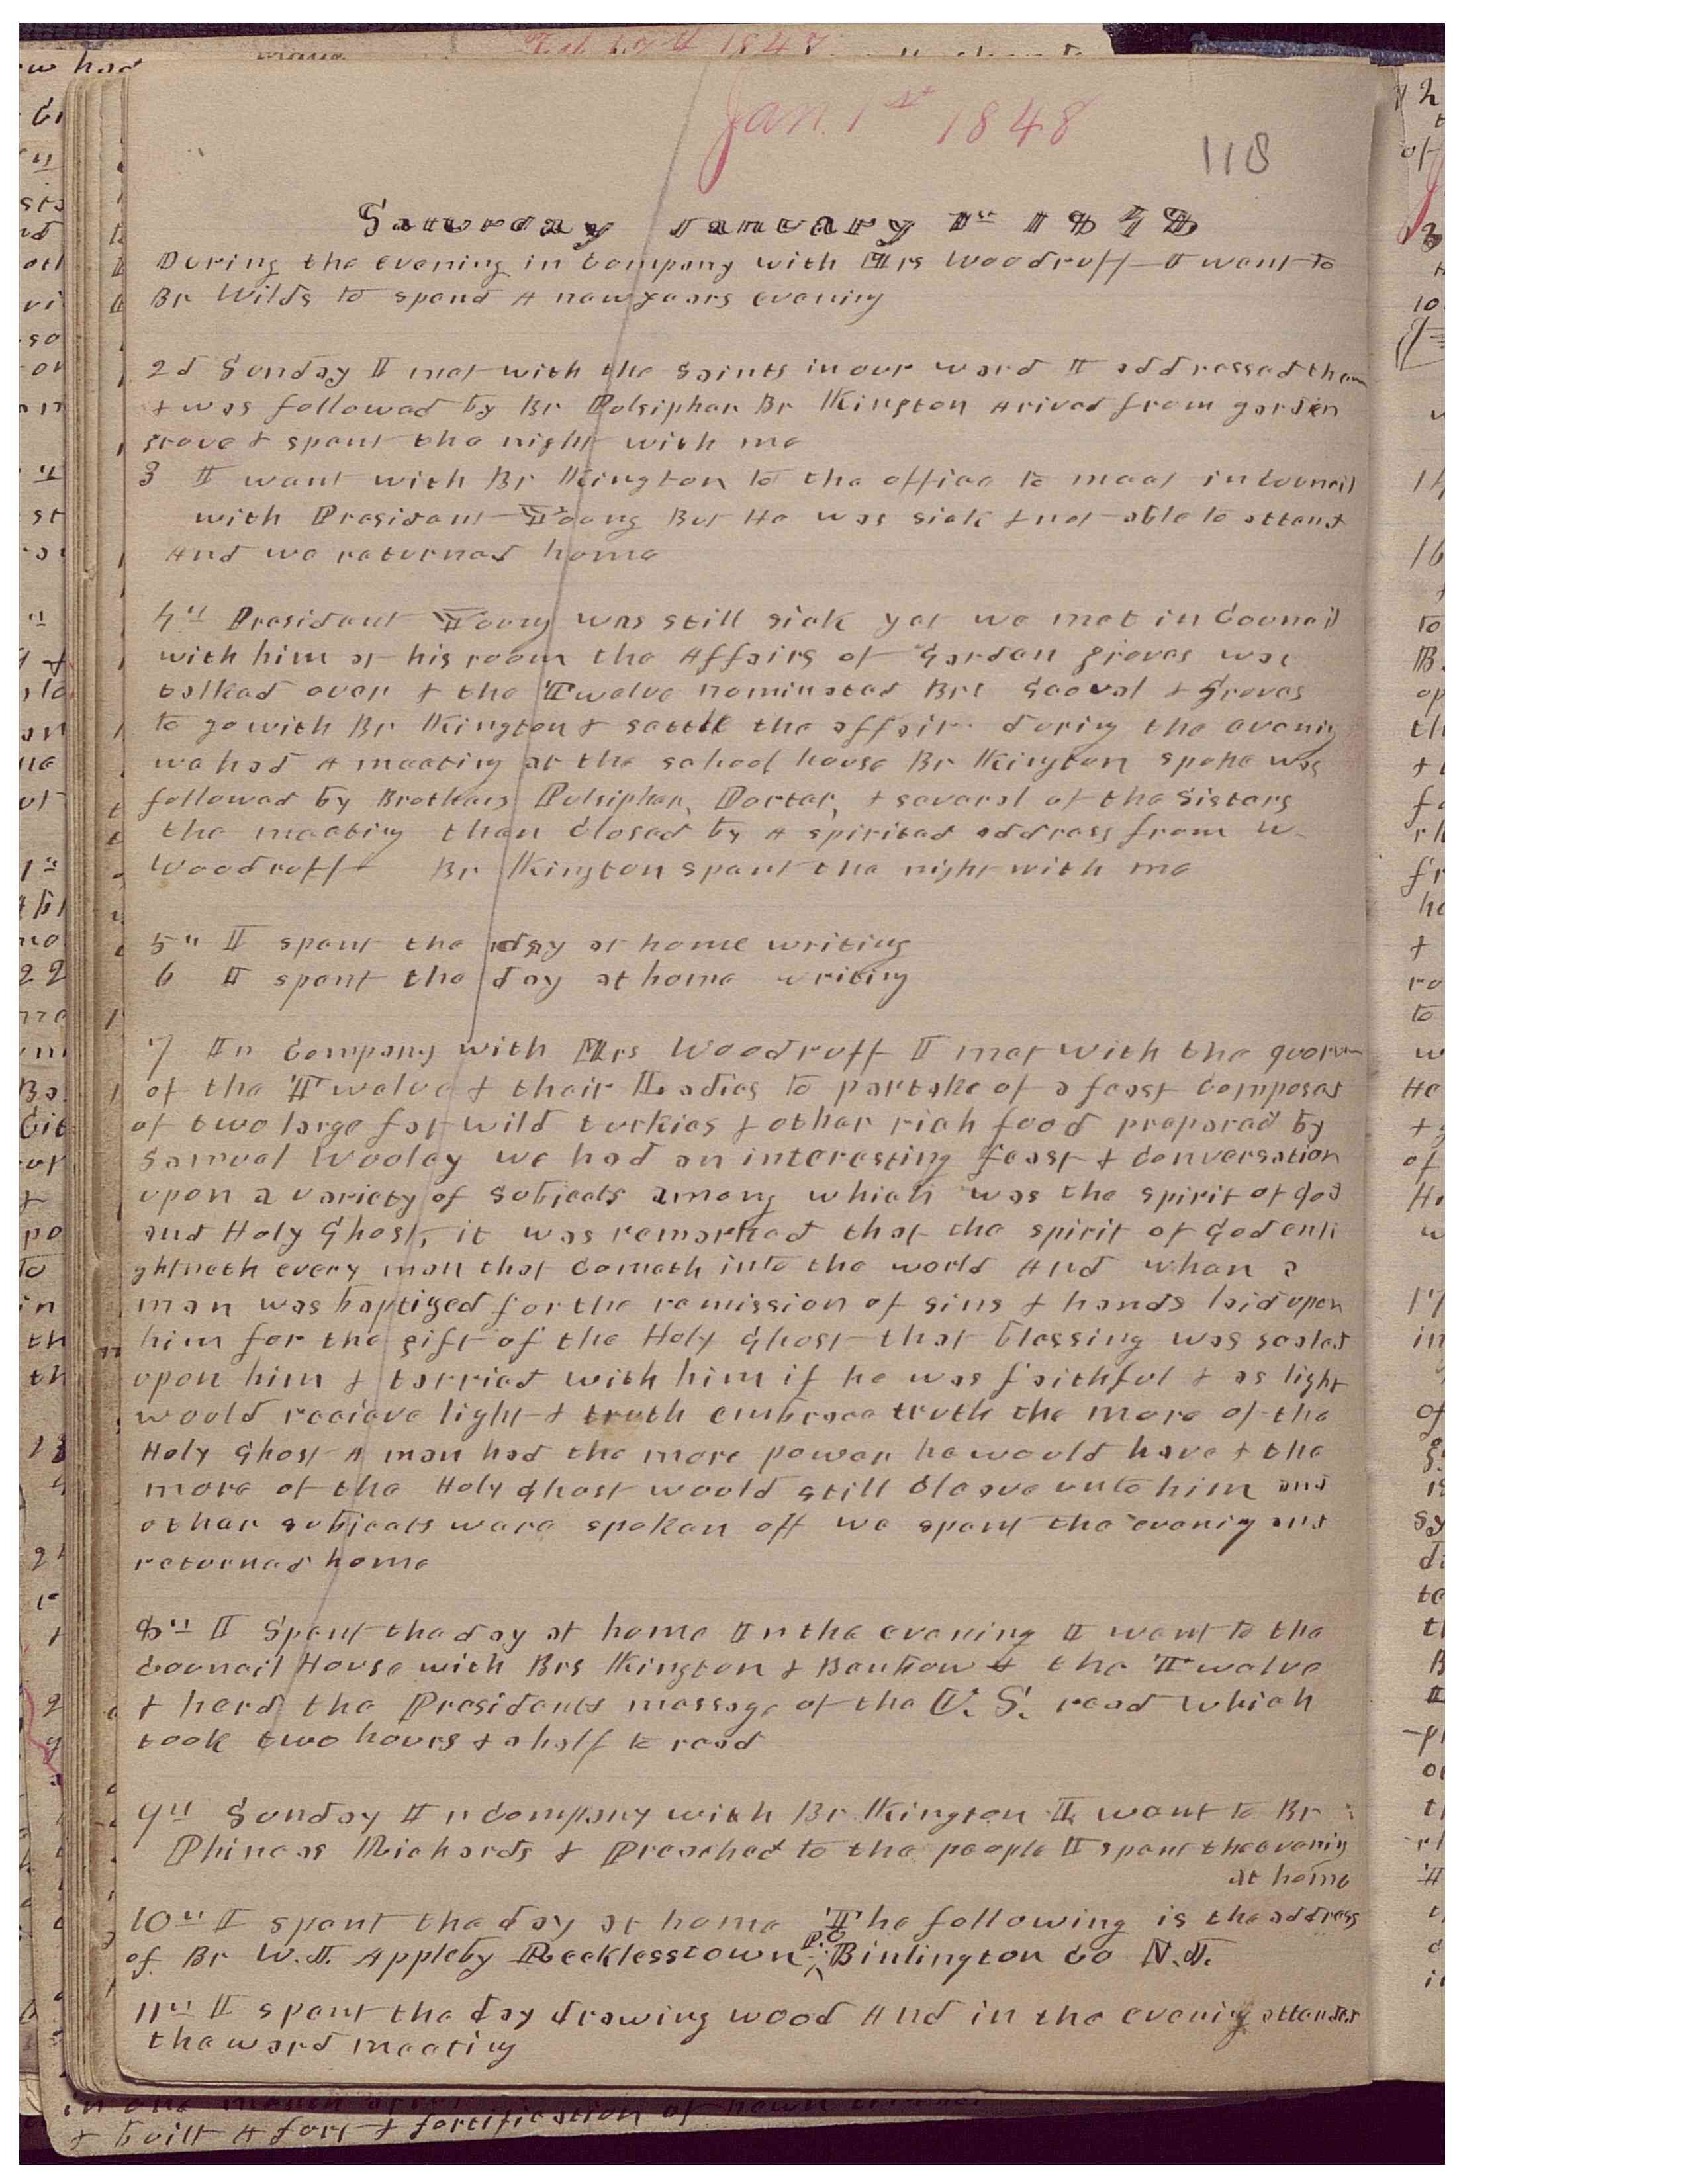 Jan. 1st 1848
118
Saturday January 1st 1848
During the evening in Company with Mrs Woodruff I went to
Br Wilds to spend A newyears evening
2d Sunday I met with the Saints in our ward I addressed them
& was followed by Br Pulsipher Br Kington Arived from garden
grove & spent the night with me
3 I went with Br Kington to the office to meet in Council
with President Young But He was sick & not able to attend
And we returned home
4th President Young was still sick yet we met in Council
with him at his room the Affairs of Garden groves was
talked over & the Twelve nominated Brs &  Groves
to go with Br Kington & settle the affair during the evening
we had A meeting at the school house Br Kington spoke was
followed by Brothers Pulsipher, Porter, & several of the Sisters
the meeting then Closed by A spirited address from W.
Woodruff Br Kington spent the night with me
5th I spent the day at home writing
6 I spent the day at home writing
7 In Company with Mrs Woodruff I met with the quorum
of the Twelve & their Ladies to partake of a feast Composed
of two large fat wild turkies & other rich food prepared by
Samuel Wooley we had an interesting feast & Conversation
upon a variety of Subjects among which was the spirit of God
and Holy Ghost, it was remarked that the spirit of God enli
ghtneth every man that Cometh into the world And when a
man was baptized for the remission of sins & hands laid upon
him for the gift of the Holy Ghost that blessing was sealed
upon him & tarried with him if he was faithful & as light
would recieve light & truth embrace truth the more of the
Holy Ghost A man had the more power he would have & the
more of the Holy Ghost would still Cleave unto him and
other subjects were spoken off we spent the evening and
returned home
8th I Spent the day at home In the evening I went to the
Council House with Brs Kington & Benbow & the Twelve
& herd the Presidents message of the U.S. read which
took two hours & a half to read
9th Sunday In Company with Br Kington I went to Br
Phineas Richards & Preached to the people I spent the evening
at home
10th I spent the day at home The following is the address
P.O
of Br W.I. Appleby Recklesstown Burlington Co N.J.
11th I spent the day drawing wood And in the evening attended
the ward meeting
& built A fort & fortification of